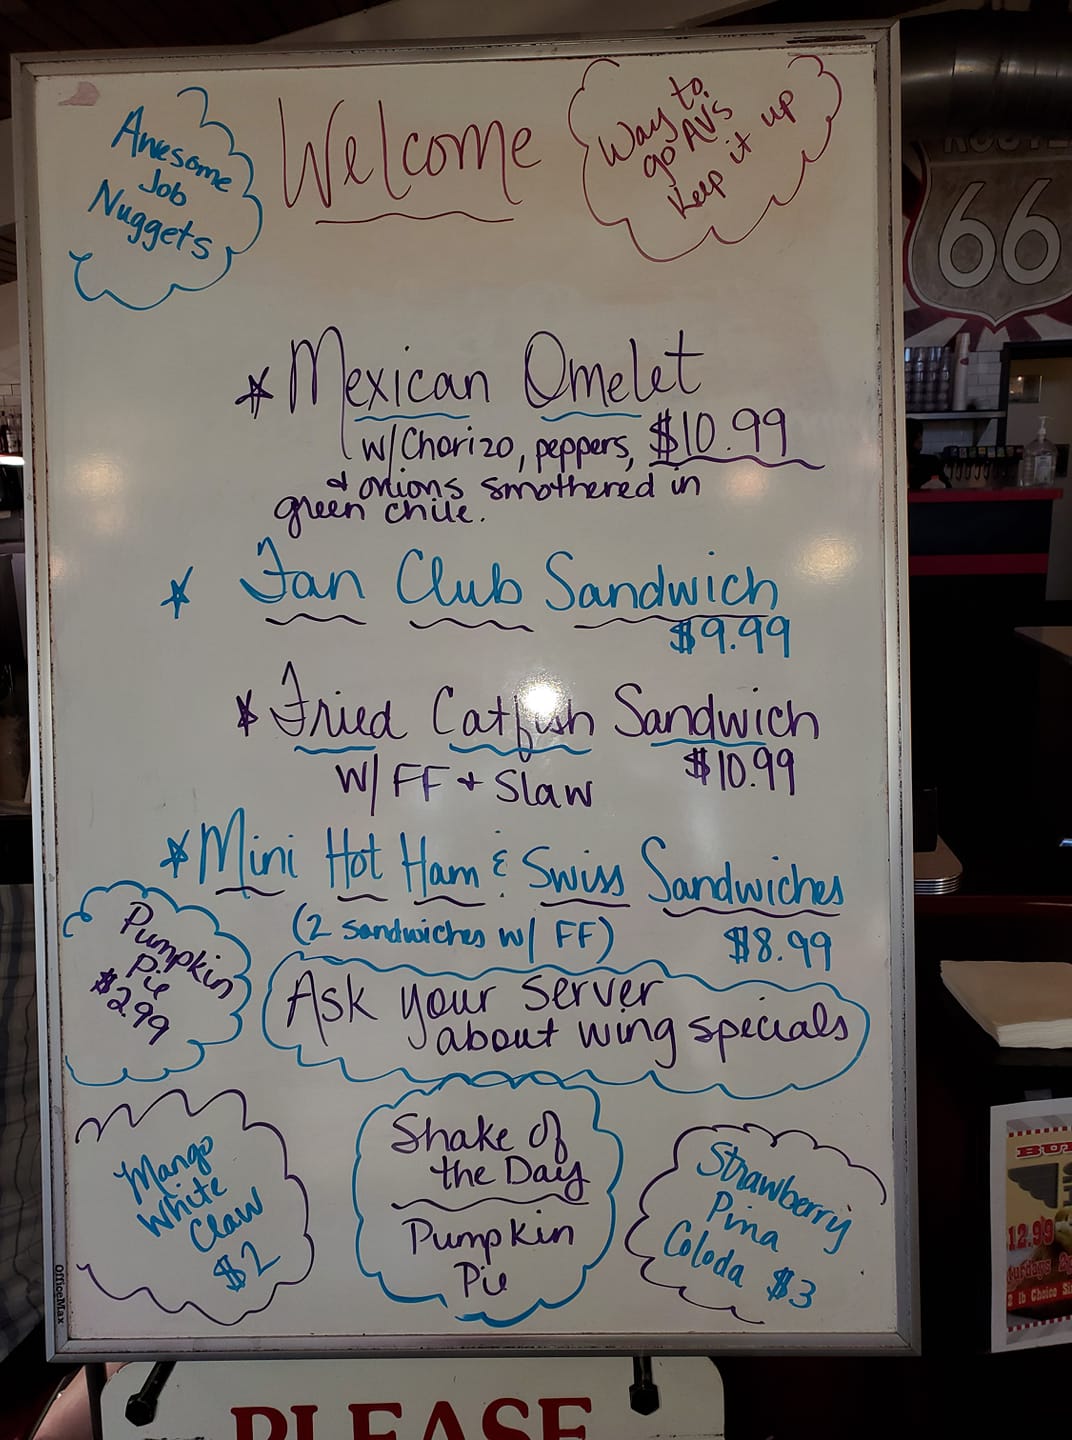 Awesome
Job
Nuggets
Welcome
Way to
go AV's
Keep it up
ROUTE
66
* Mexican Omelet
w/Chorizo, peppers, $10.99
& onions smothered in
green chile.
* Fan Club Sandwich
$9.99
* Fried Catfish Sandwich
W/ FF & Slaw $10.99
* Mini Hot Ham & Swiss Sandwiches
(2 sandwiches w/ FF) $8.99
Pumpkin
Pie
$2.99
Ask your server
about wing specials
Mango
White
Claw
$2
Shake of
the Day
Pumpkin
Pie
Strawberry
Pina
Coloda $3
OfficeMax
12.99
2 lb Choice
PLEASE